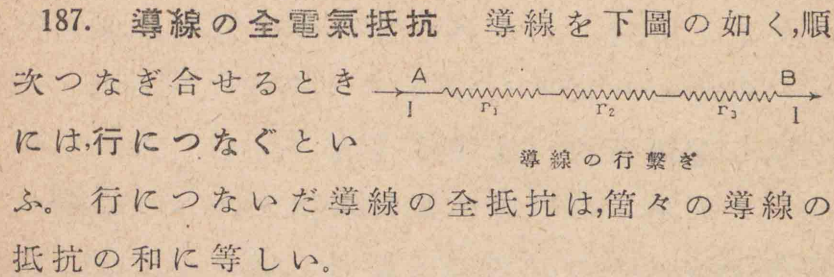 187. 導線の全電氣抵抗　導線を下圖の如く,順
次つなぎ合せるとき
には,行につなぐとい
ふ。行につないだ導線の全抵抗は,箇々の導線の
抵抗の和に等しい。
A B
I r₁ r₂ r₃ I
導線の行繫ぎ